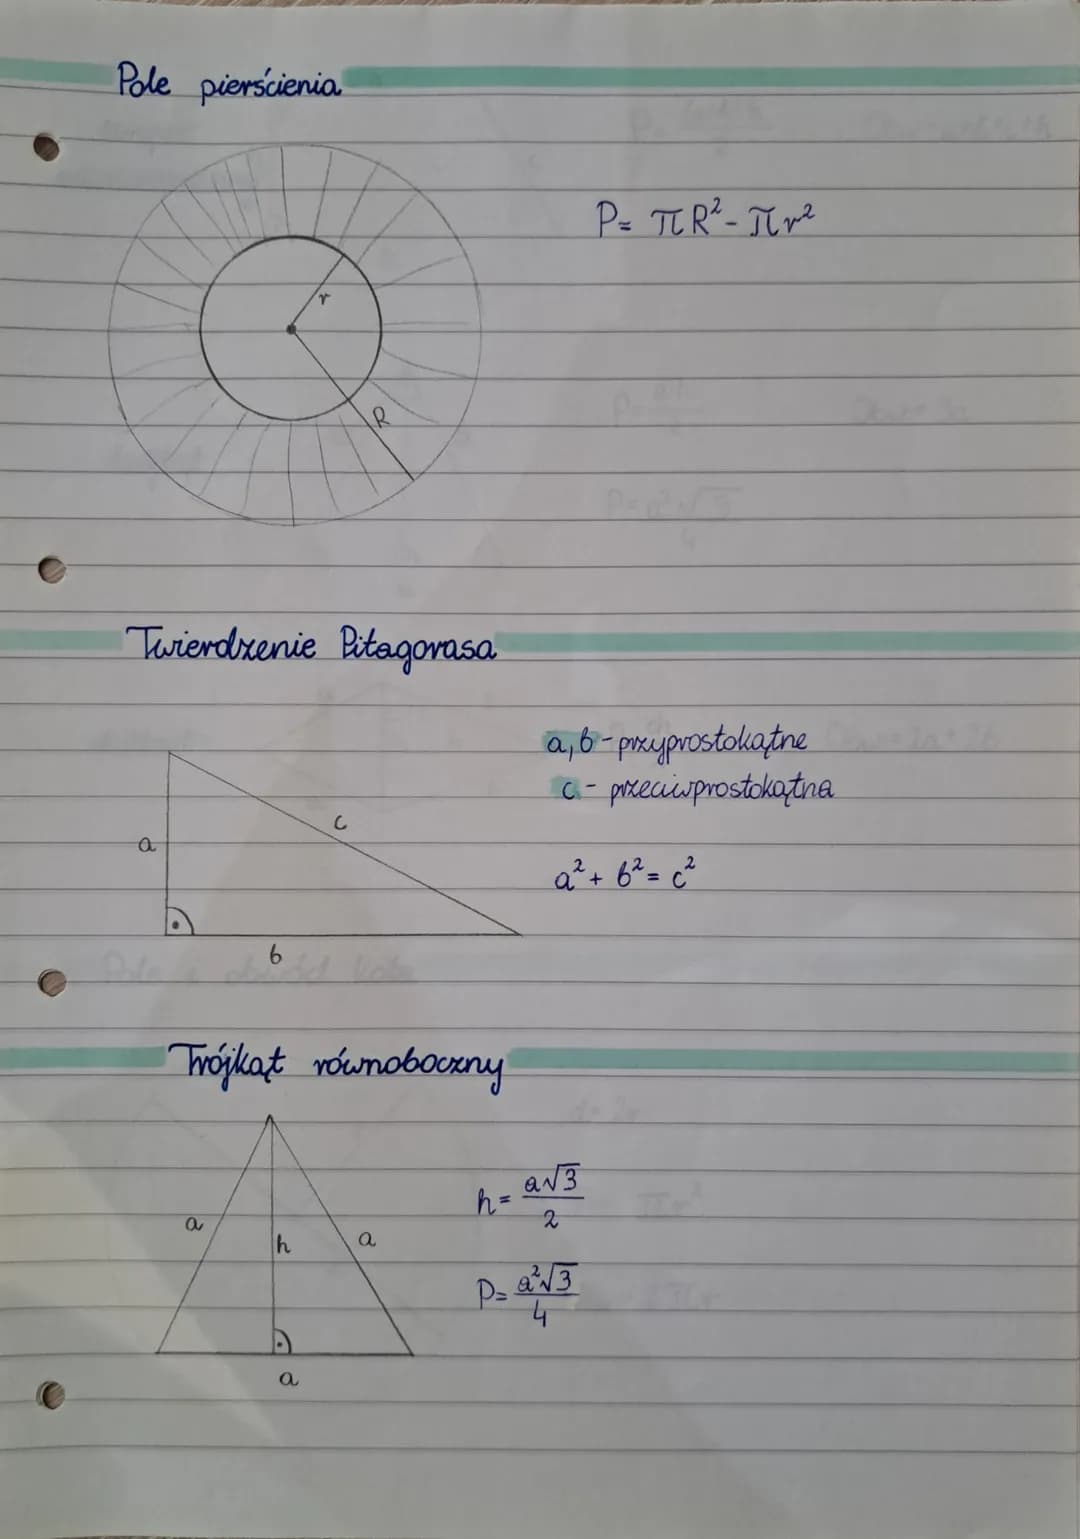 Pole pierścienia
P= πR²-πr²
r
R
Twierdzenie Pitagorasa
a, b - przyprostokątne
c - przeciwprostokątna
a
c
a² + b² = c²
b
Trójkąt równoboczny
h= a√3/2
a
h
a
P= a²√3/4
a